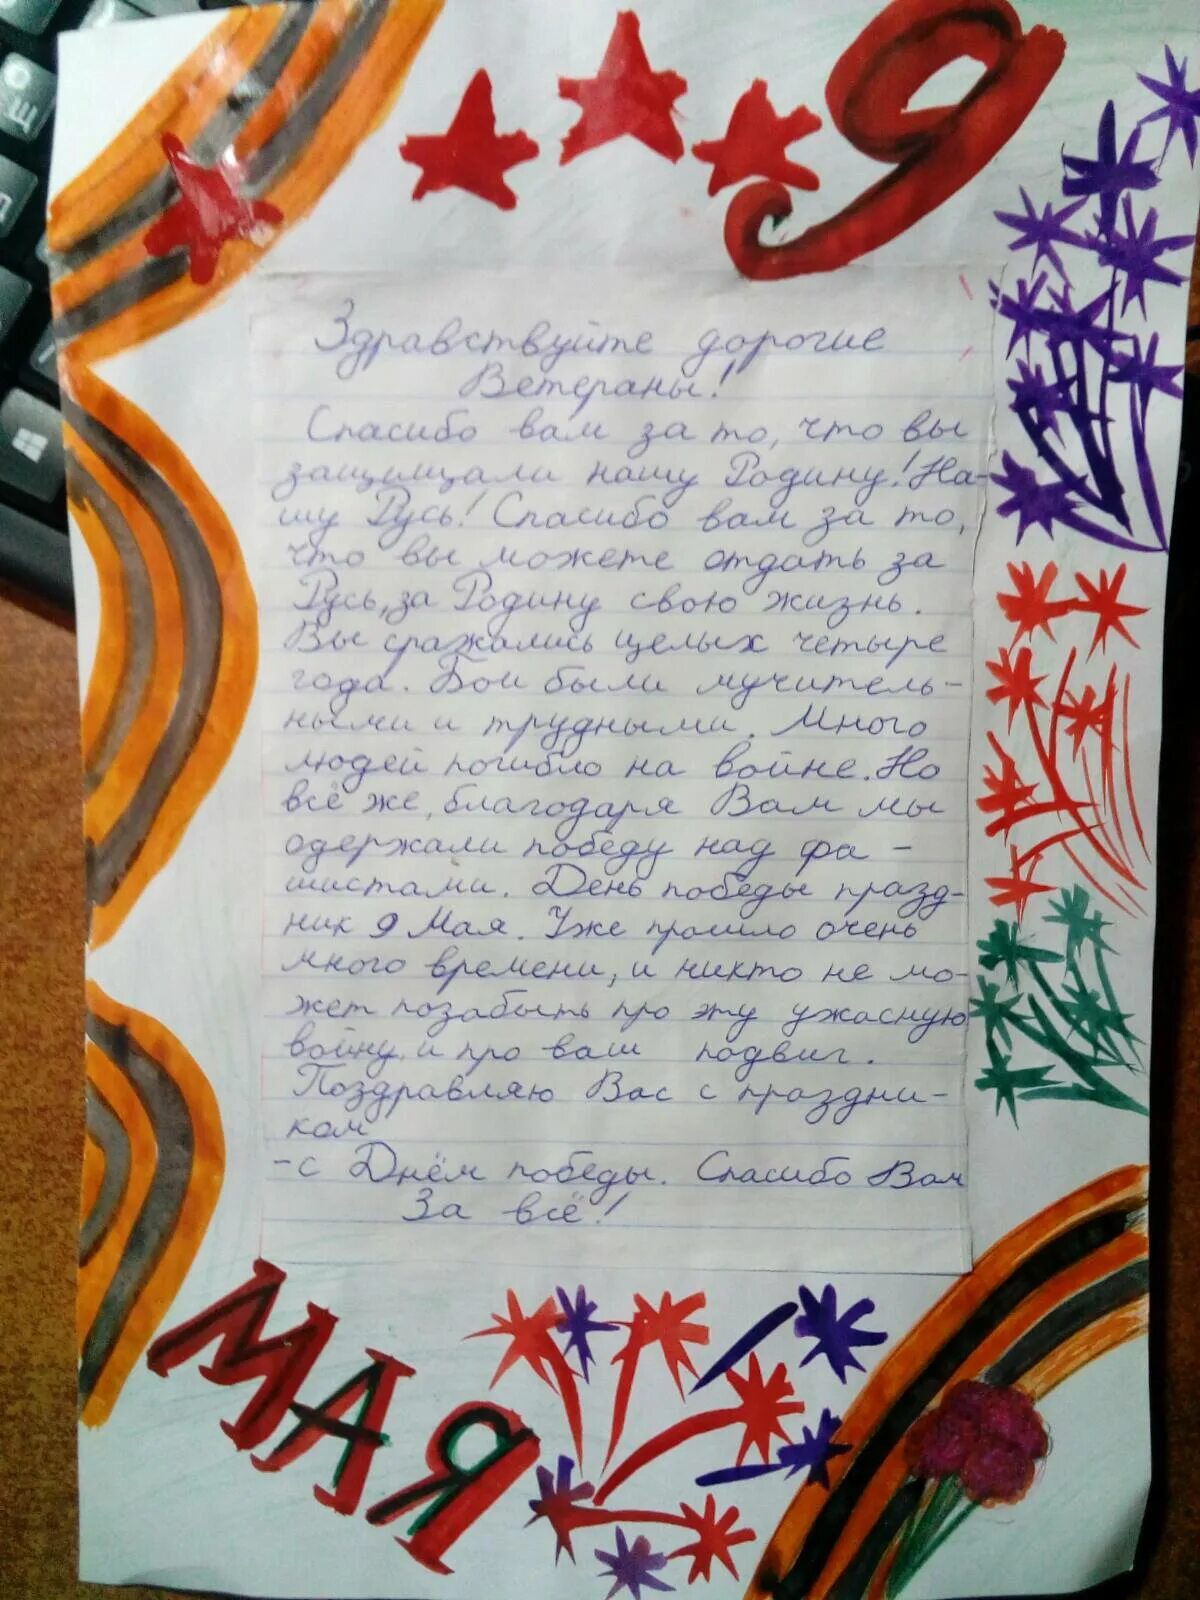 9
Здравствуйте дорогие
Ветераны!
Спасибо вам за то, что вы
защищали нашу Родину! На-
шу Русь! Спасибо вам за то,
что вы можете отдать за
Русь, за Родину свою жизнь.
Вы сражались целых четыре
года. Бои были мучитель-
ными и трудными. Много
людей погибло на войне. Но
всё же, благодаря Вам мы
одержали победу над фа-
шистами. День победы празд-
ник 9 Мая. Уже прошло очень
много времени, и никто не мо-
жет позабыть про эту ужасную
войну и про ваш подвиг.
Поздравляю Вас с праздни-
ком
-с Днём победы. Спасибо Вам
За всё!
МАЯ